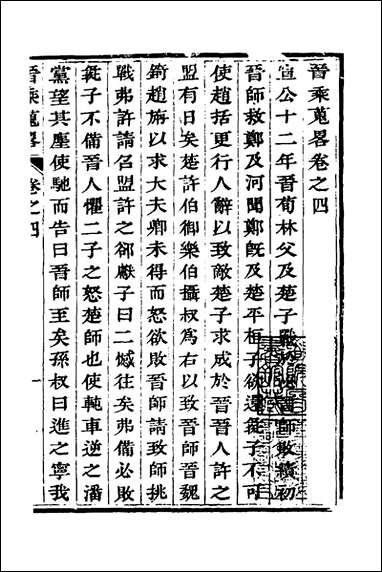 晉乘蒐畧卷之四
宣公十二年晉荀林父及楚子戰於邲晉師敗績初
晉師救鄭及河聞鄭旣及楚平桓子欲還彘子不可
使趙括更行人辭以致敵楚子求成於晉晉人許之
盟有日矣楚許伯御樂伯攝叔爲右以致晉師晉魏
錡趙旃以求大夫卿未得而怒欲敗晉師請致師挑
戰弗許請召盟許之郤獻子曰二憾往矣弗備必敗
彘子不備晉人懼二子之怒楚師也使軘車逆之潘
黨望其塵使馳而告曰晉師至矣孫叔曰進之寧我
晉乘蒐畧 卷之四 一